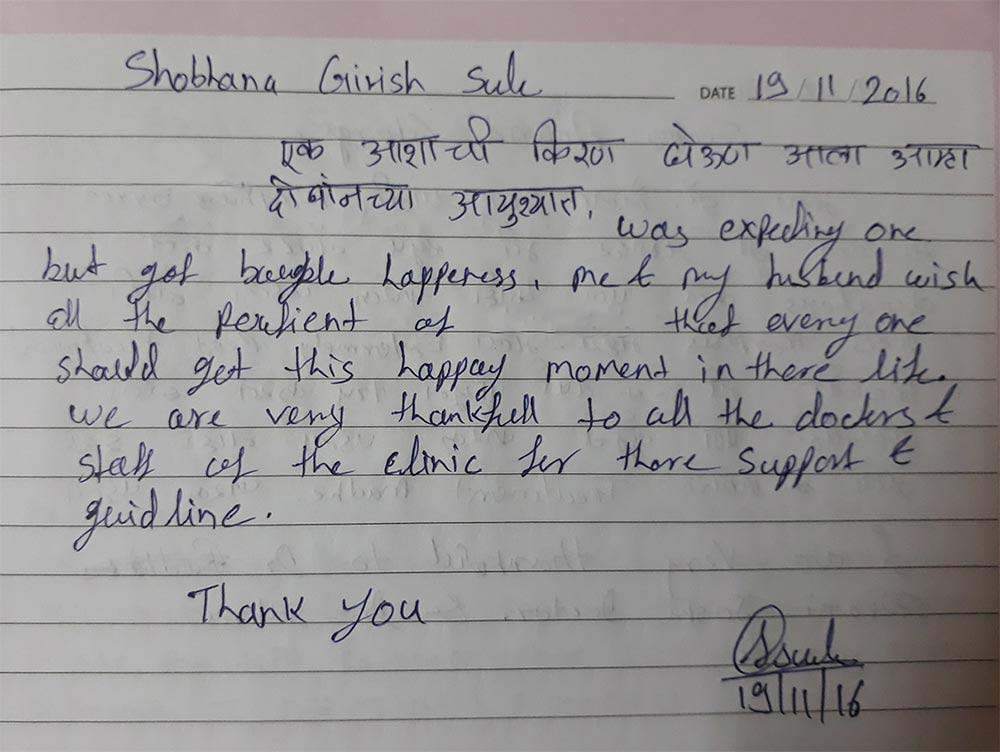 Shobhana Girish Sule DATE 19/11/2016
एक आशाची किरण होऊण आला आम्हा
दोघांनच्या आयुश्यात.
was expecting one
but got bauble happeress. me & my husbend wish
all the peritient of that every one
should get this happay moment in there life.
we are very thankfull to all the docters &
staff of the clinic for there support &
guidline.
Thank you
19/11/16